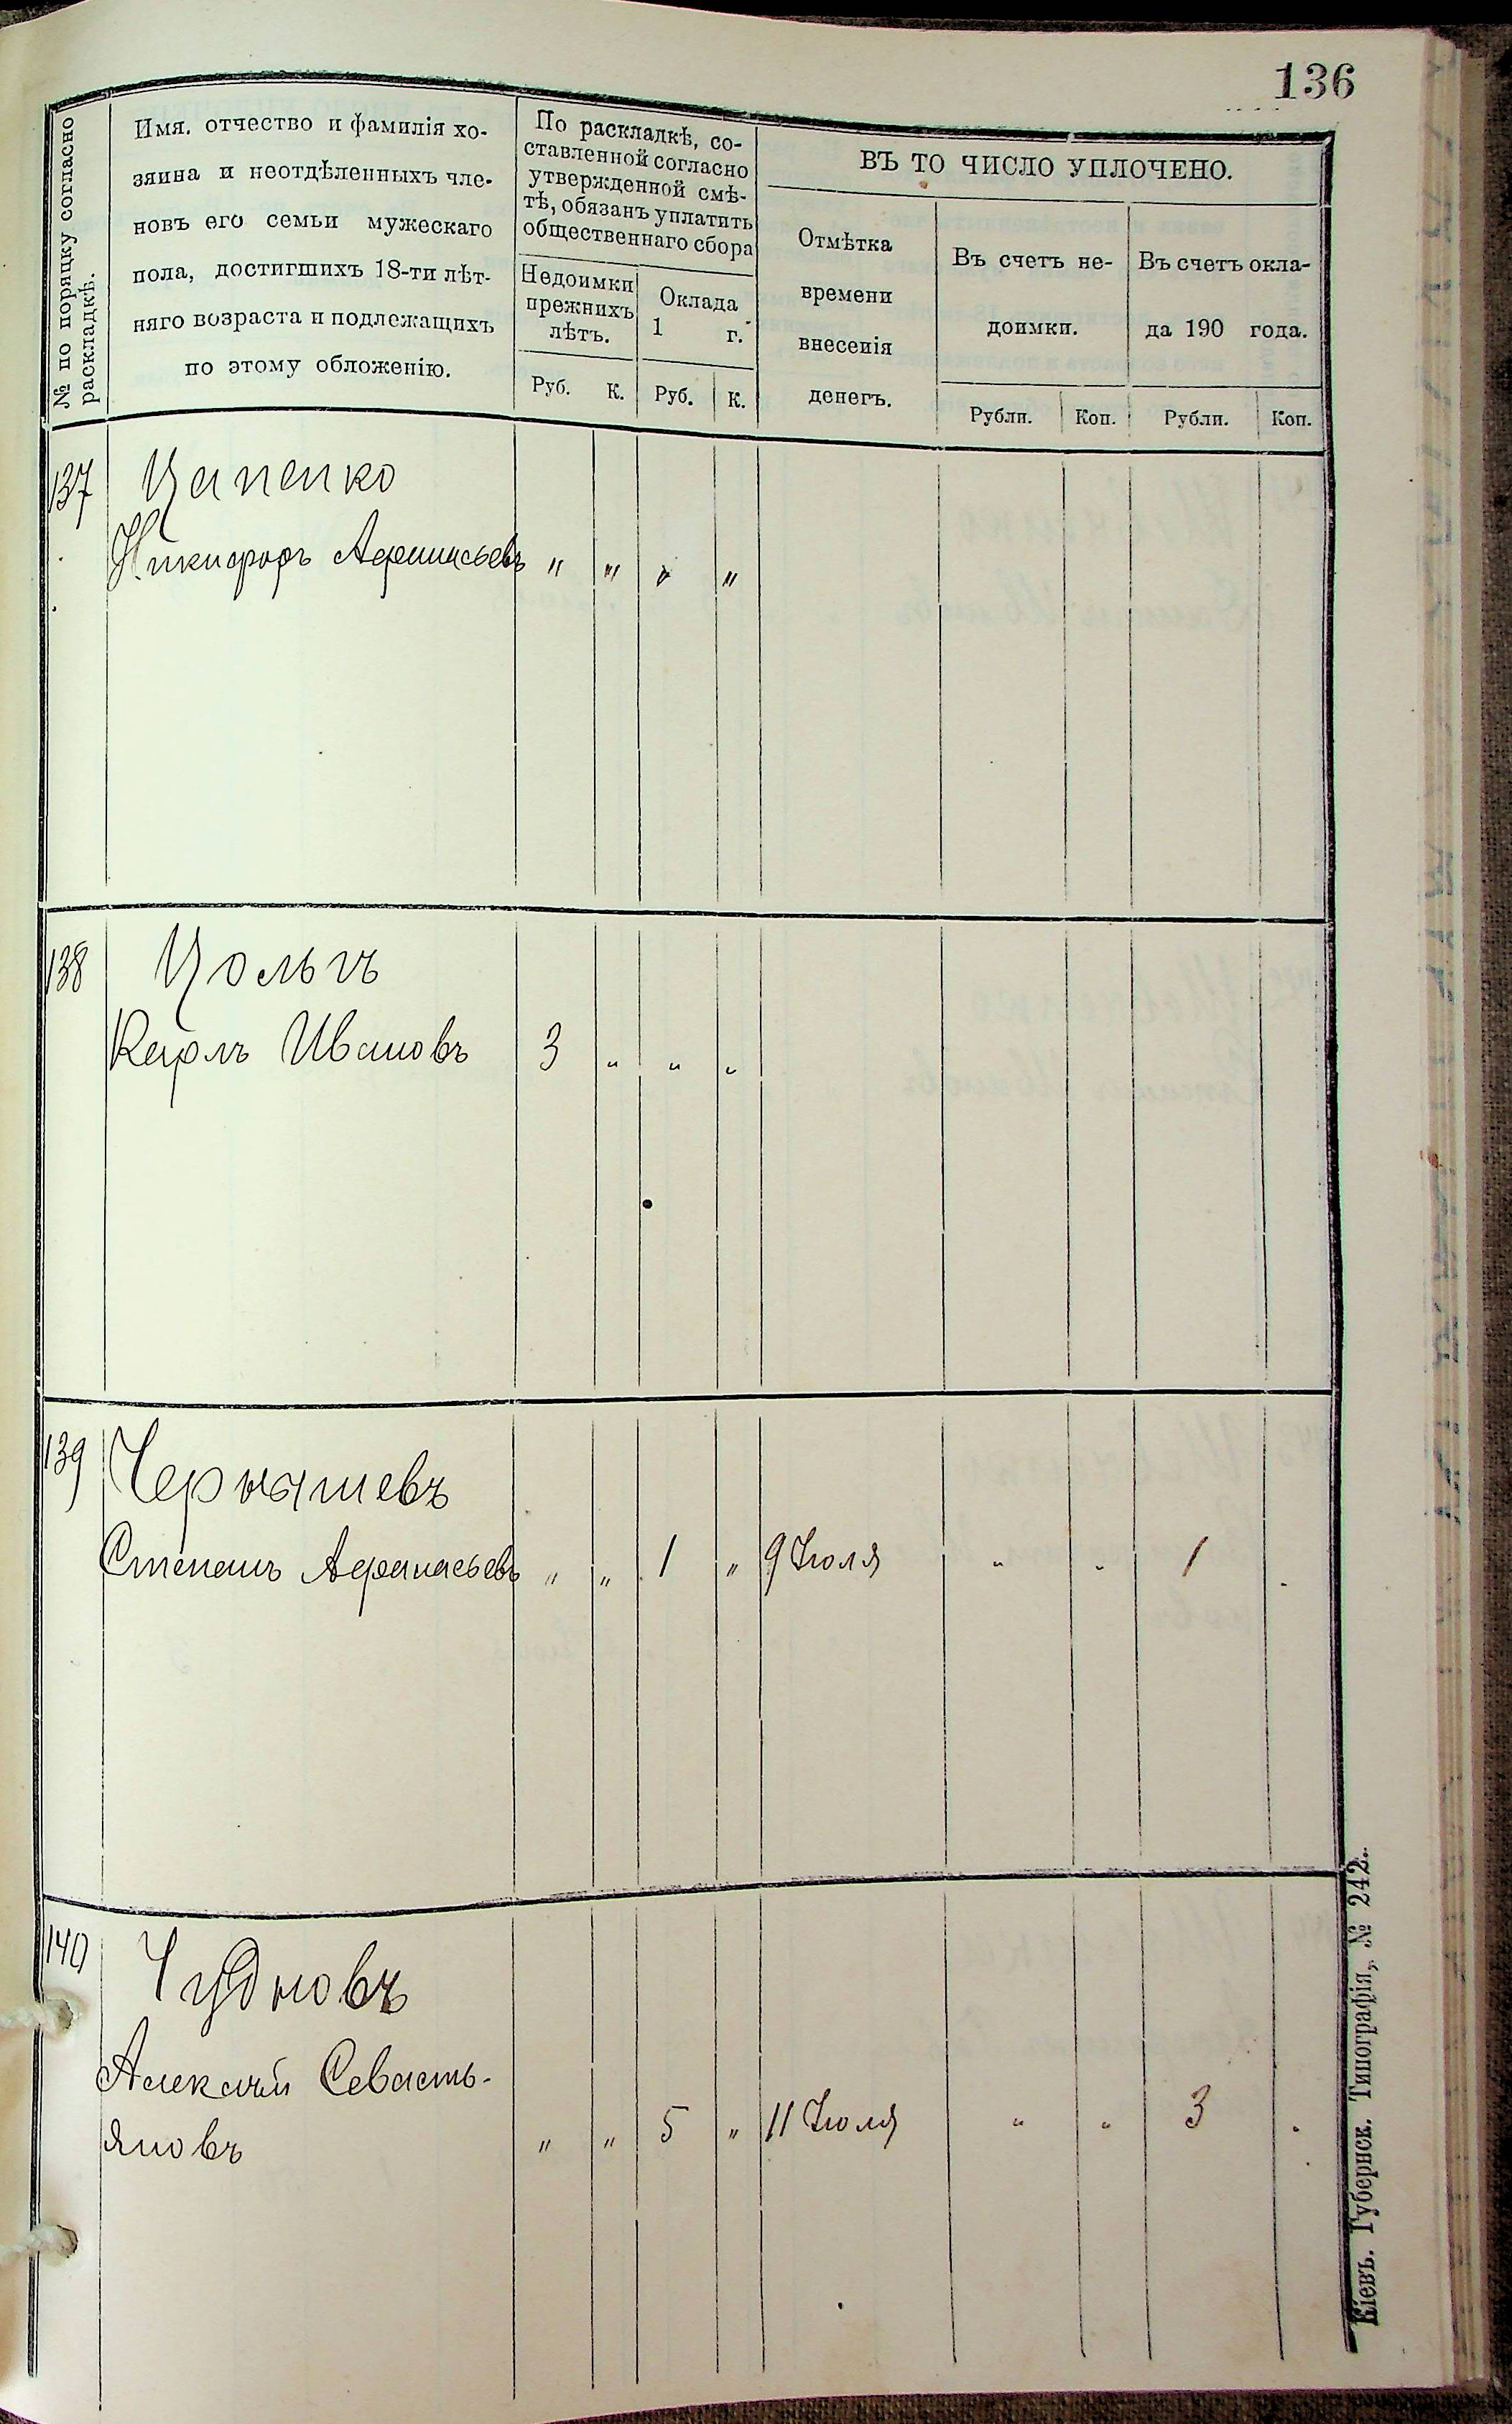 136
№ по порядку согласно
раскладкѣ.
Имя. отчество и фамилія хо-
зяина и неотдѣленныхъ чле-
новъ его семьи мужескаго
пола, достигшихъ 18-ти лѣт-
няго возраста и подлежащихъ
по этому обложенію.
По раскладкѣ, со-
ставленной согласно
утвержденной смѣ-
тѣ, обязанъ уплатить
общественнаго сбора
Недоимки
прежнихъ
лѣтъ.
Оклада
1 г.
Руб. К. Руб. К.
ВЪ ТО ЧИСЛО УПЛОЧЕНО.
Отмѣтка
времени
внесенія
денегъ.
Въ счетъ не-
доимки.
Въ счетъ окла-
да 190 года.
Рубли. Коп. Рубли. Коп.
137 Цапенко
Никифоръ Афанасьевъ " " " "
138 Цольгъ
Карлъ Ивановъ 3 " " "
139 Чернышевъ
Степанъ Афанасьевъ " " 1 " 9 Іюля " " 1 "
140 Чудновъ
Алексѣй Севасть-
яновъ " " 5 " 11 Іюля " " 3 "
Кіевъ. Губернск. Типографія, № 242.